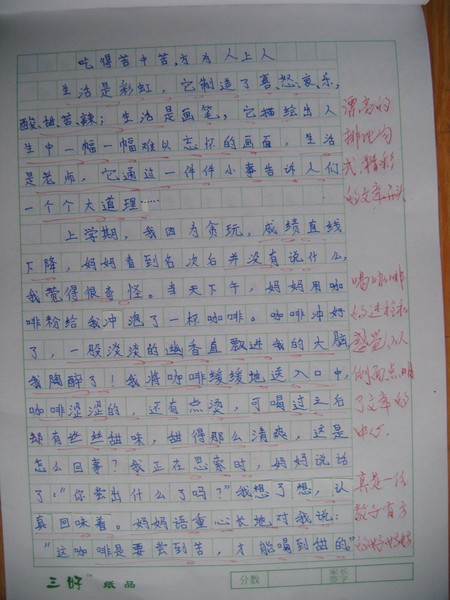 吃得苦中苦,方为人上人
生活是彩虹,它制造了喜、怒、哀、乐,
酸、甜、苦、辣;生活是画笔,它描绘出人
生中一幅一幅难以忘怀的画面,生活
是老师,它通过一件件小事告诉人们
一个个大道理……
上学期,我因为贪玩,成绩直线
下降,妈妈看到名次后并没有说什么,
我觉得很奇怪。当天下午,妈妈用咖
啡粉给我冲泡了一杯咖啡。咖啡冲好
了,一股淡淡的幽香直飘进我的大脑
我陶醉了!我将咖啡缓缓地送入口中,
咖啡涩涩的,还有点烫,可喝过之后
却有丝丝甜味,甜得那么清爽,这是
怎么回事?我正在思索时,妈妈说话
了:“你尝出什么了吗?”我想了想,认
真回味着。妈妈语重心长地对我说:
“这咖啡是要尝到苦,才能喝到甜的”
漂亮的
排比句
式,精彩
的文章开头
喝咖啡
的过程和
感觉令人
侧面点明
了文章的
中心
真是一位
教子有方
的好妈妈
三好 纸品
分数
家长
签字